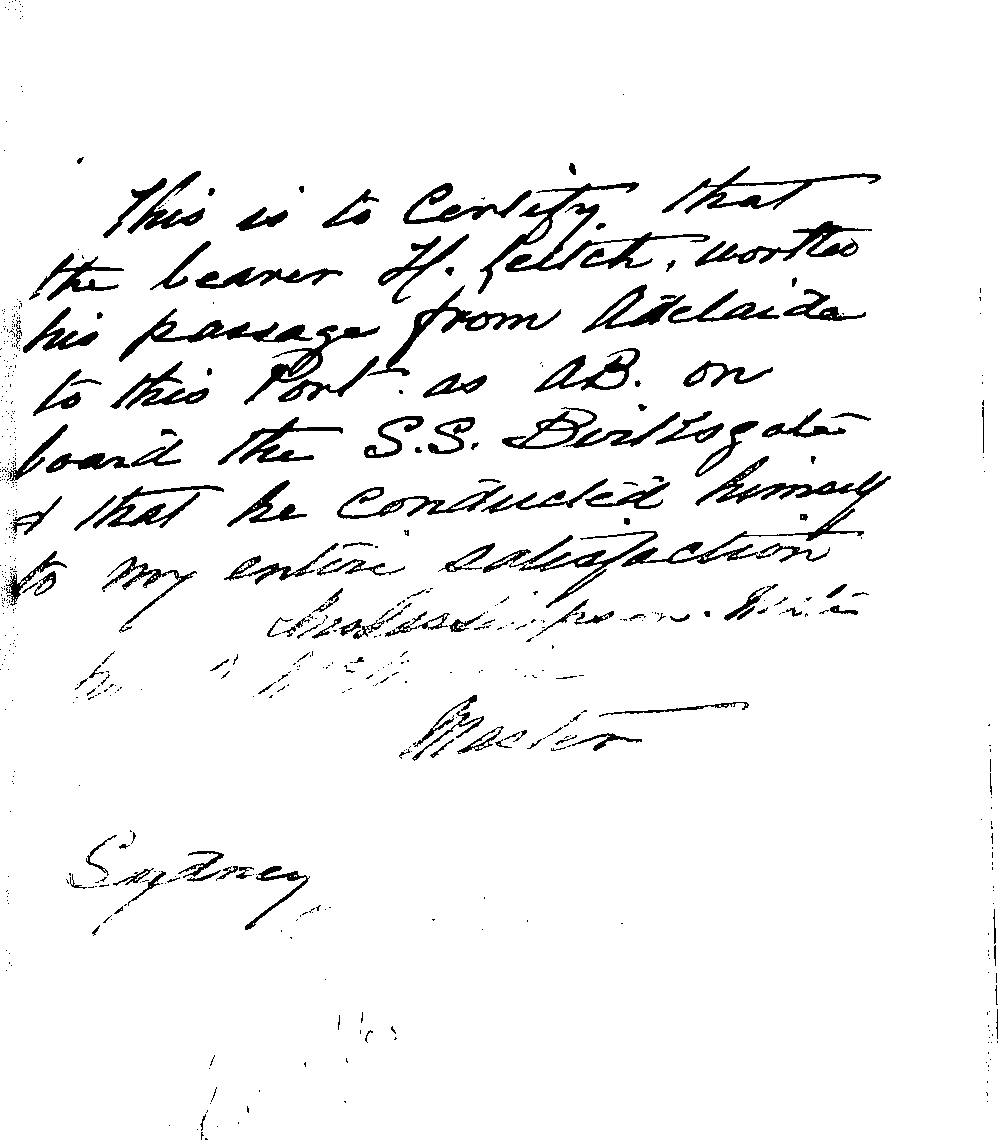 This is to Certify that
the bearer H. Leitch, worked
his passage from Adelaide
to this Port. as AB. on
board the S.S. Birksgate
& that he conducted himself
to my entire satisfaction
Simpson.
Master
Sydney